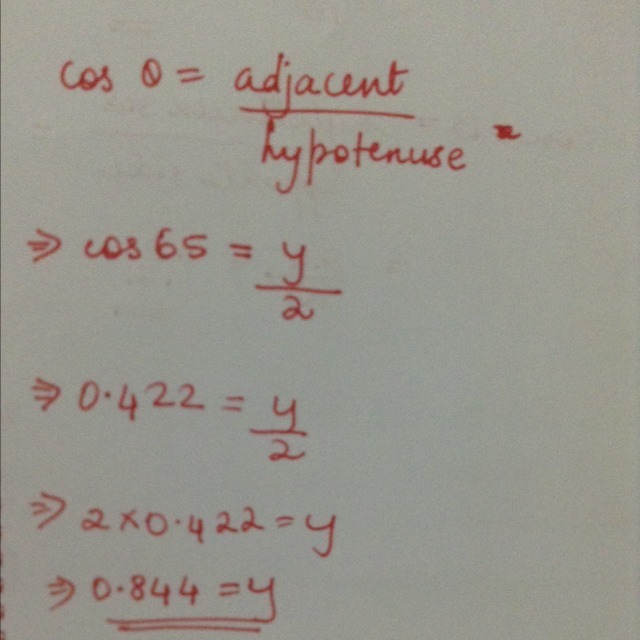 cos θ = adjacent
hypotenuse
⇒ cos 65 = y
2
⇒ 0.422 = y
2
⇒ 2×0.422 = y
⇒ 0.844 = y